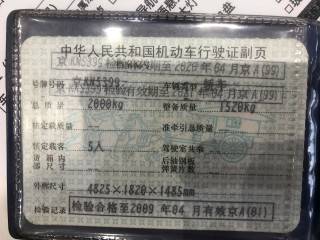 中华人民共和国机动车行驶证副页
京KM5399 检验有效期至2020年04月京A(99)
号牌号码 京KM5399
检验有效期至 年04月京A(99)
总质量 2000kg 整备质量 1520kg
核定载质量 准牵引总质量
核定载客 5人 驾驶室共乘
货箱内部尺寸 后轴钢板弹簧片数
外廓尺寸 4825×1820×1485mm
检验记录 检验合格至2009年04月有效京A(81)